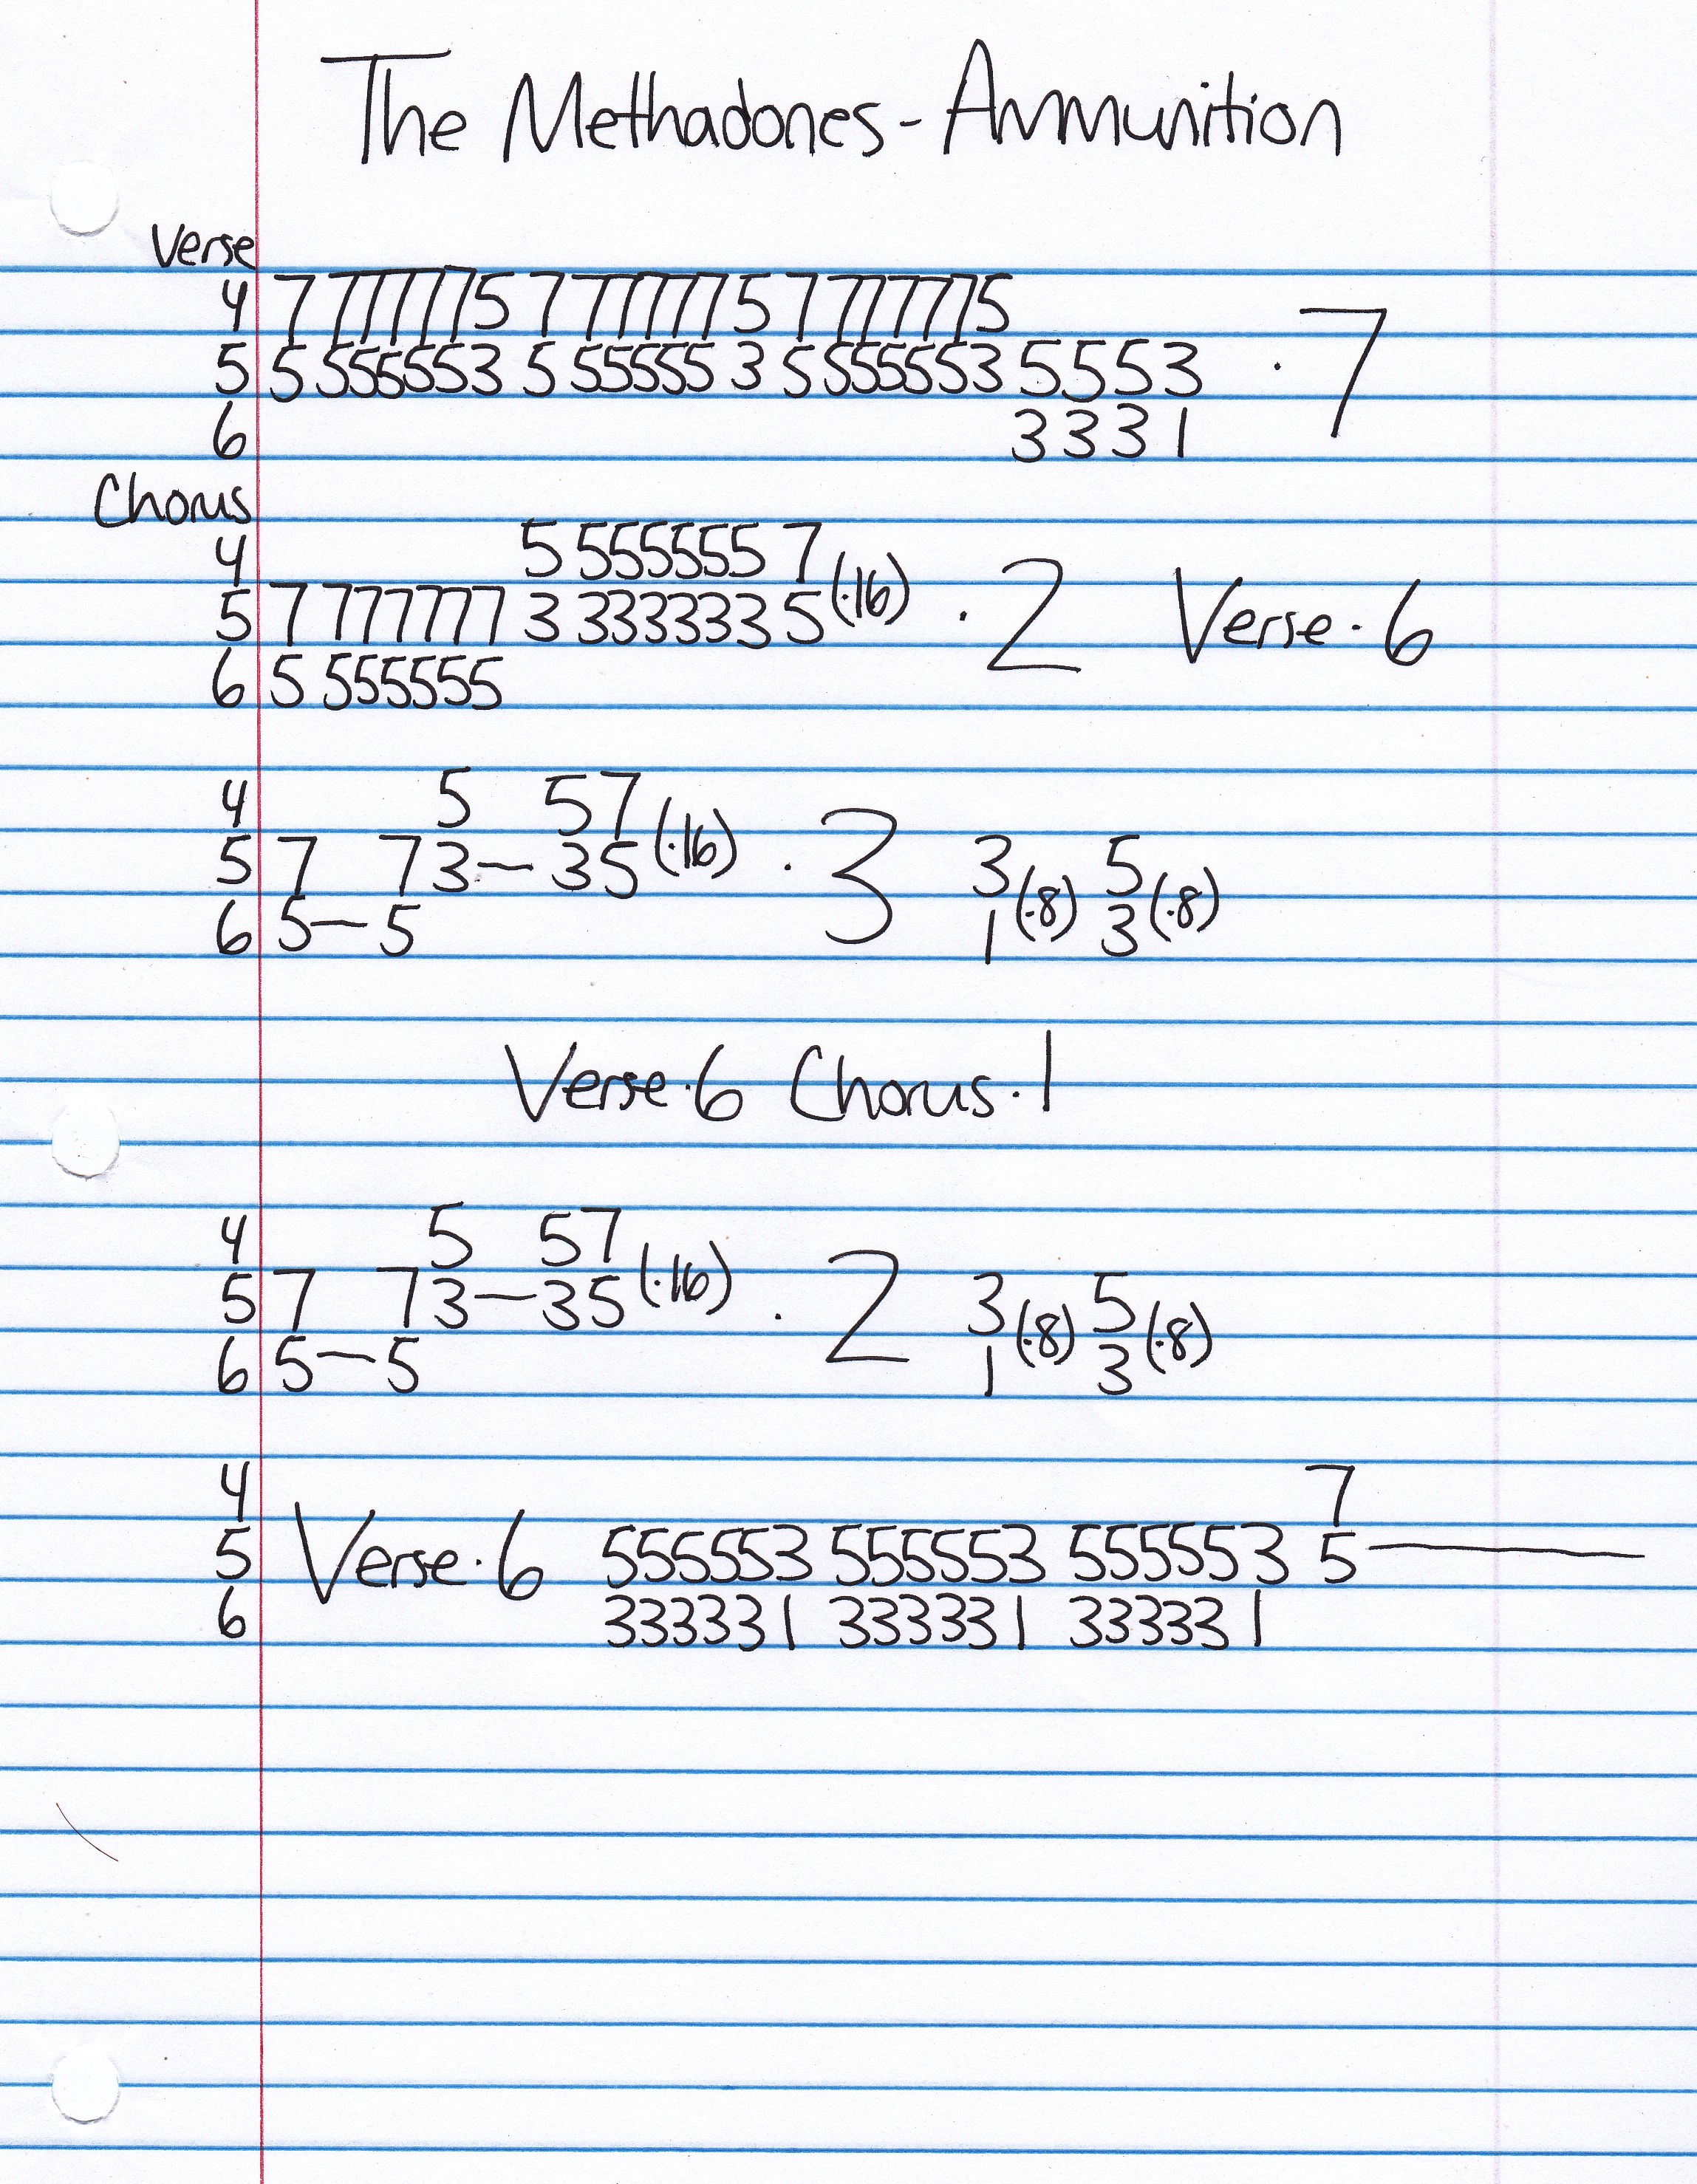 The Methadones - Ammunition
Verse
4 7 7777775 7 777777 5 7 7777775
5 5 5555553 5 55555 3 5 5555553 5553 · 7
6 3331
Chorus
4 5 555555 7
5 7 777777 3 333333 5 (·16) · 2 Verse · 6
6 5 555555
4 5 57
5 7 73—35 (·16) · 3 3 (·8) 5 (·8)
6 5—5 1 3
Verse · 6 Chorus · 1
4 5 57
5 7 73—35 (·16) · 2 3 (·8) 5 (·8)
6 5—5 1 3
4 7
5 Verse · 6 555553 555553 555553 5—
6 333331 333331 333331